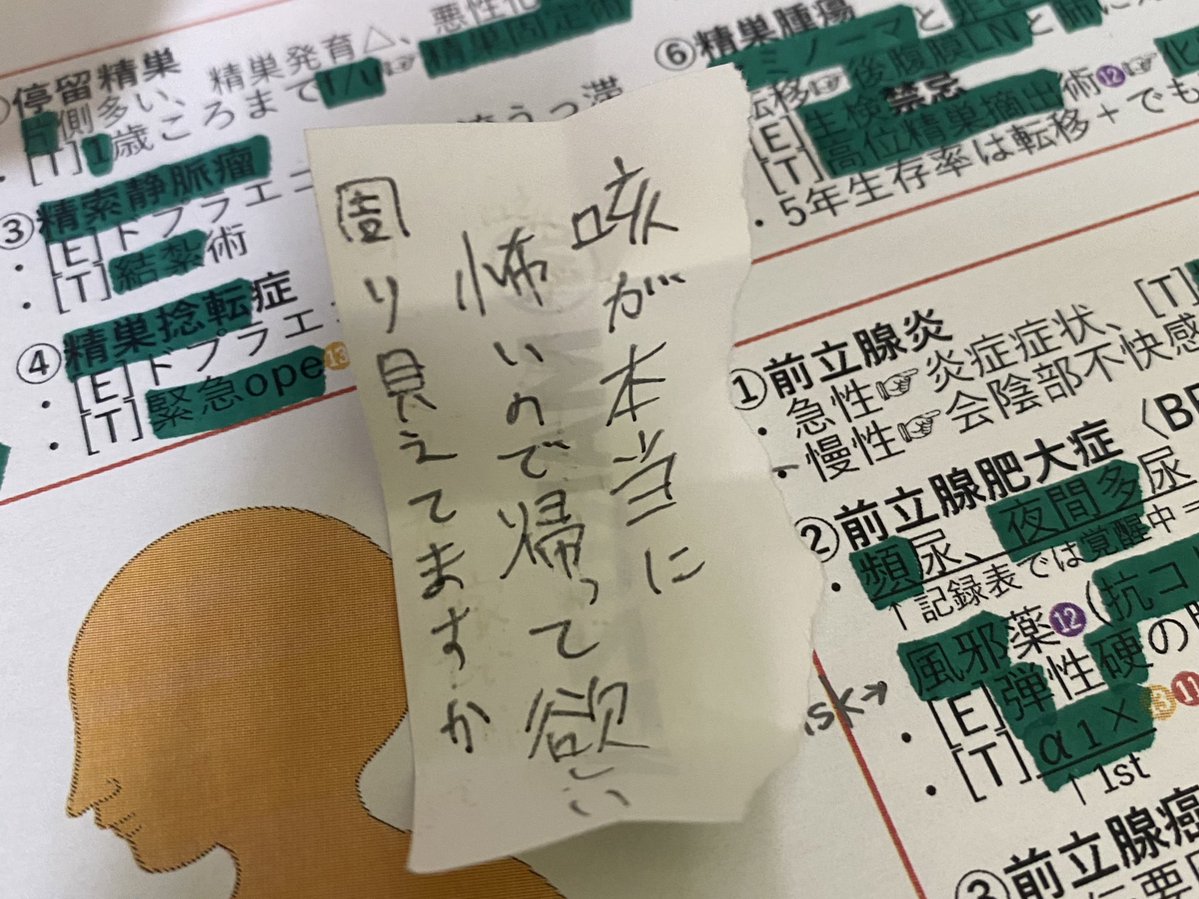 停留精巣
側多い、精巣発育△、悪性化
・[T]1歳ころまで 精巣固定術
③精索静脈瘤
・[E]ドプラエコ
・[T]結紮術
④精巣捻転症
・[E]ドプラエコ
・[T]緊急ope⑬
⑥精巣腫瘍
転移☞後腹膜LNと肺
[E]生検禁忌
[T]高位精巣摘出術⑫☞化
・5年生存率は転移＋でも
咳が本当に
怖いので帰って欲しい
周り見えてますか
①前立腺炎
・急性☞炎症症状、[T]
・慢性☞会陰部不快感
②前立腺肥大症〈BP
・頻尿、夜間多尿
↑記録表では覚醒中＝
風邪薬⑫(抗コ
・[E]弾性硬の
・[T]α1×⑬⑪
↑1st
③前立腺癌